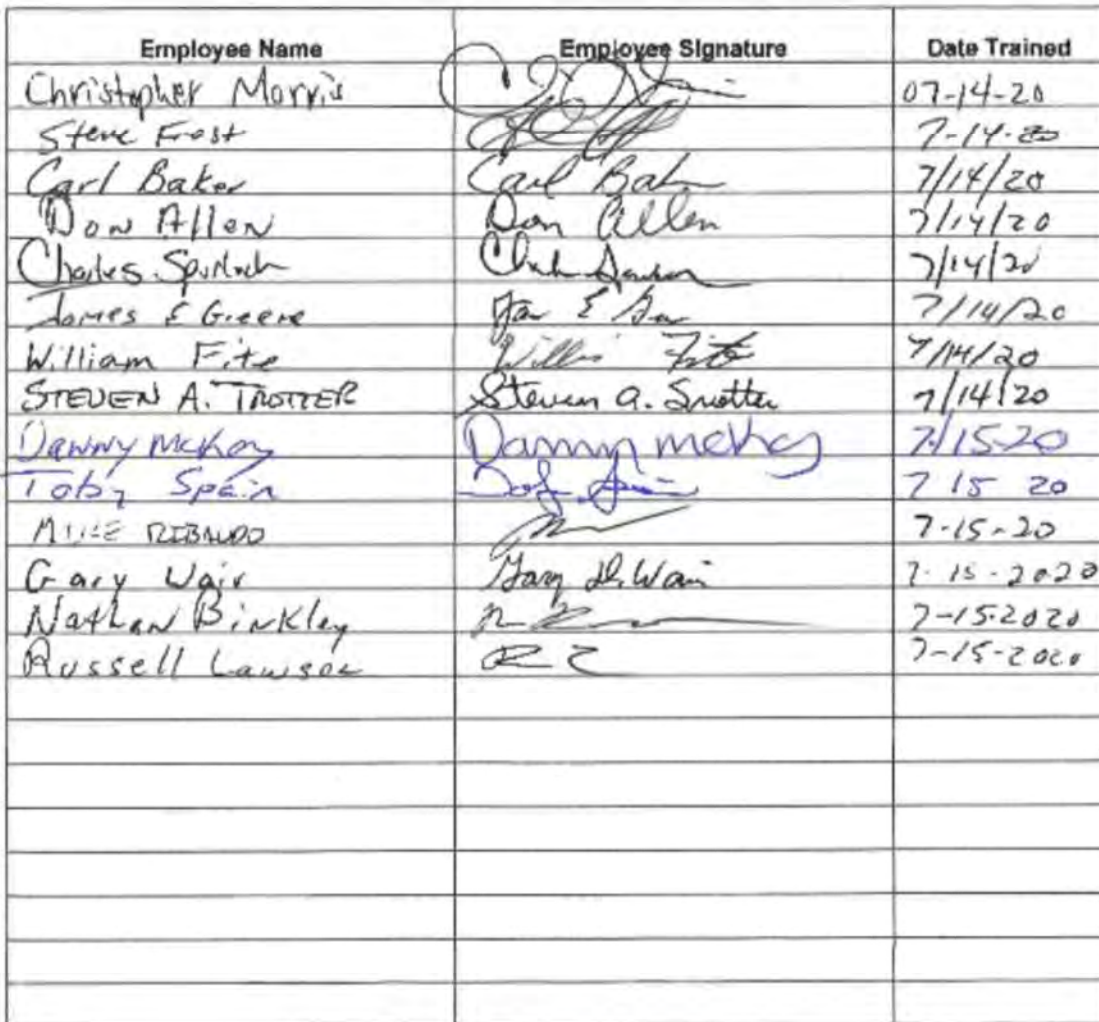 Employee Name Employee Signature Date Trained
Christopher Morris 07-14-20
Steve Frost 7-14-20
Carl Baker Carl Bak 7/14/20
Don Allen Don Allen 7/14/20
Charles 7/14/20
James E Greene 7/14/20
William Fite 7/14/20
STEVEN A. TROTTER Steven A. Trotter 7/14/20
Danny McKoy Danny McKoy 7/15-20
Toby Spain 7 15 20
MIKE RIBAUDO 7-15-20
Gary Wair 7-15-2020
Nathan Binkley 7-15-2020
Russell Lawson 7-15-2020